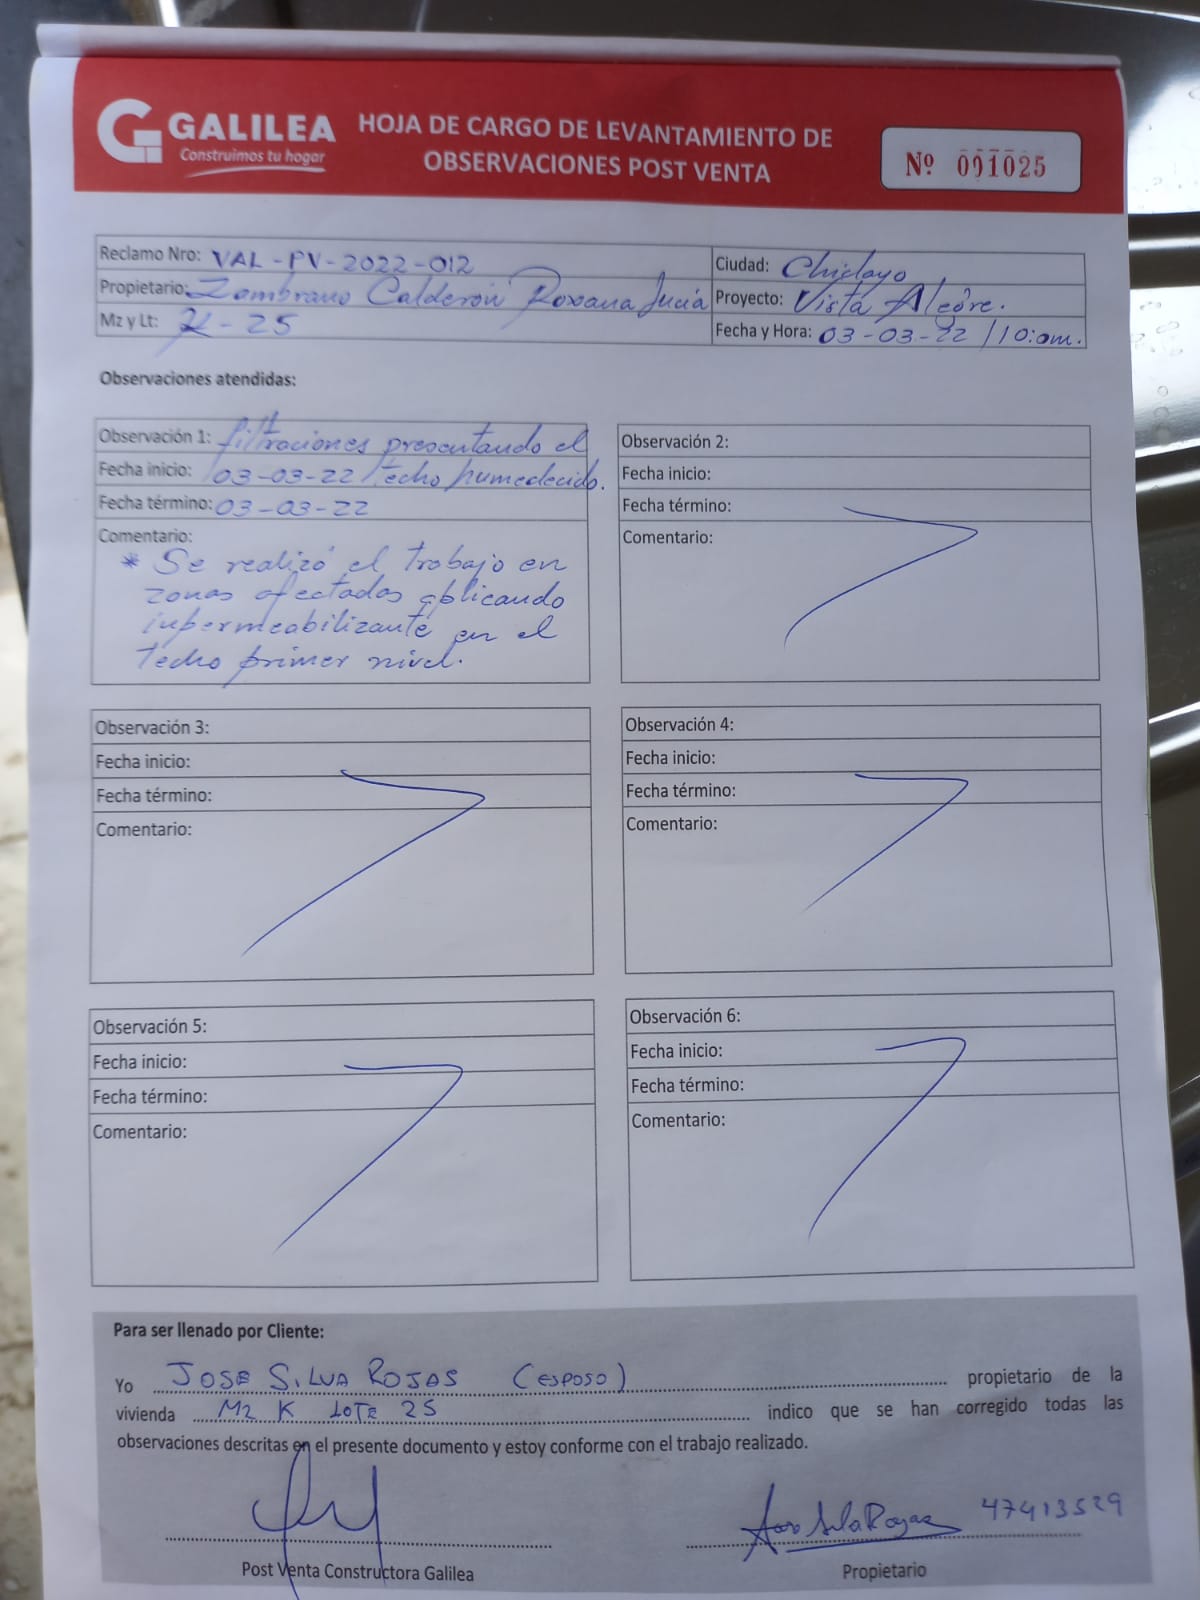 GALILEA
Construimos tu hogar
HOJA DE CARGO DE LEVANTAMIENTO DE
OBSERVACIONES POST VENTA
Nº 001025
Reclamo Nro: VAL-PV-2022-012
Ciudad: Chiclayo
Propietario: Zambrano Calderón Roxana Lucía
Proyecto: Vista Alegre.
Mz y Lt: K-25
Fecha y Hora: 03-03-22 / 10:am.
Observaciones atendidas:
Observación 1: filtraciones presentando el
Fecha inicio: 03-03-22 techo humedecido.
Fecha término: 03-03-22
Comentario:
* Se realizó el trabajo en
zonas afectadas aplicando
impermeabilizante en el
techo primer nivel.
Observación 2:
Fecha inicio:
Fecha término:
Comentario:
Observación 3:
Fecha inicio:
Fecha término:
Comentario:
Observación 4:
Fecha inicio:
Fecha término:
Comentario:
Observación 5:
Fecha inicio:
Fecha término:
Comentario:
Observación 6:
Fecha inicio:
Fecha término:
Comentario:
Para ser llenado por Cliente:
Yo JOSE SILVA ROJAS (ESPOSO) propietario de la
vivienda Mz K LOTE 25 indico que se han corregido todas las
observaciones descritas en el presente documento y estoy conforme con el trabajo realizado.
47413529
Post Venta Constructora Galilea
Propietario